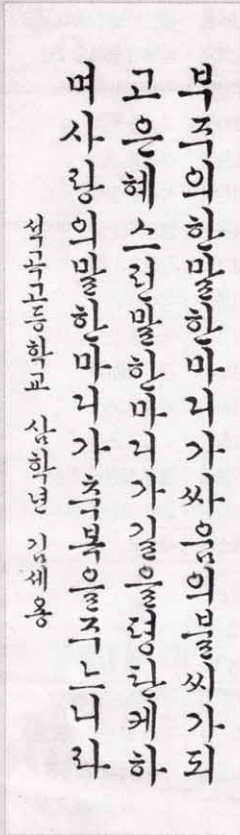 부주의한말한마디가싸움의불씨가되
고은혜스런말한마디가길을평탄케하
며사랑의말한마디가축복을주느니라
석곡고등학교 삼학년 김세용